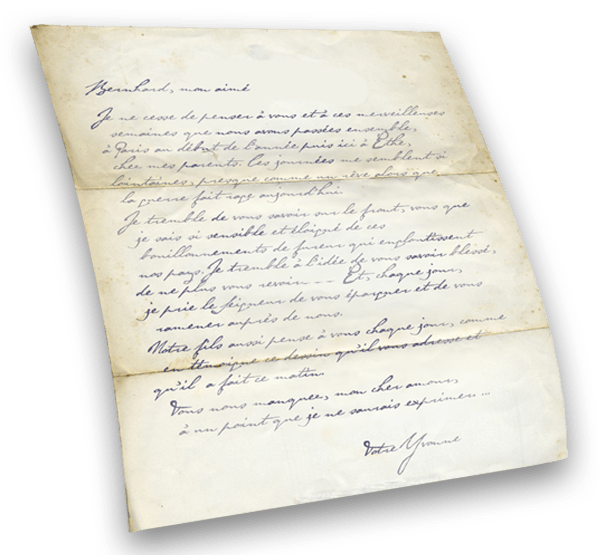 Bernhard, mon aimé
Je ne cesse de penser à vous et à ces merveilleuses
semaines que nous avons passées ensemble,
à Paris au début de l'année puis ici à Ethe,
chez mes parents. Ces journées me semblent si
lointaines, presque comme un rêve alors que
la guerre fait rage aujourd'hui.
Je tremble de vous savoir sur le front, vous que
je sais si sensible et éloigné de ces
bouillonnements de fureur qui engloutissent
nos pays. Je tremble à l'idée de vous savoir blessé,
de ne plus vous revoir--- Et, chaque jour,
je prie le Seigneur de vous épargner et de vous
ramener auprès de nous.
Notre fils aussi pense à vous chaque jour, comme
en témoigne ce dessin qu'il vous adresse et
qu'il a fait ce matin.
Vous nous manquez, mon cher amour,
à un point que je ne saurais exprimer...
Votre Yvonne